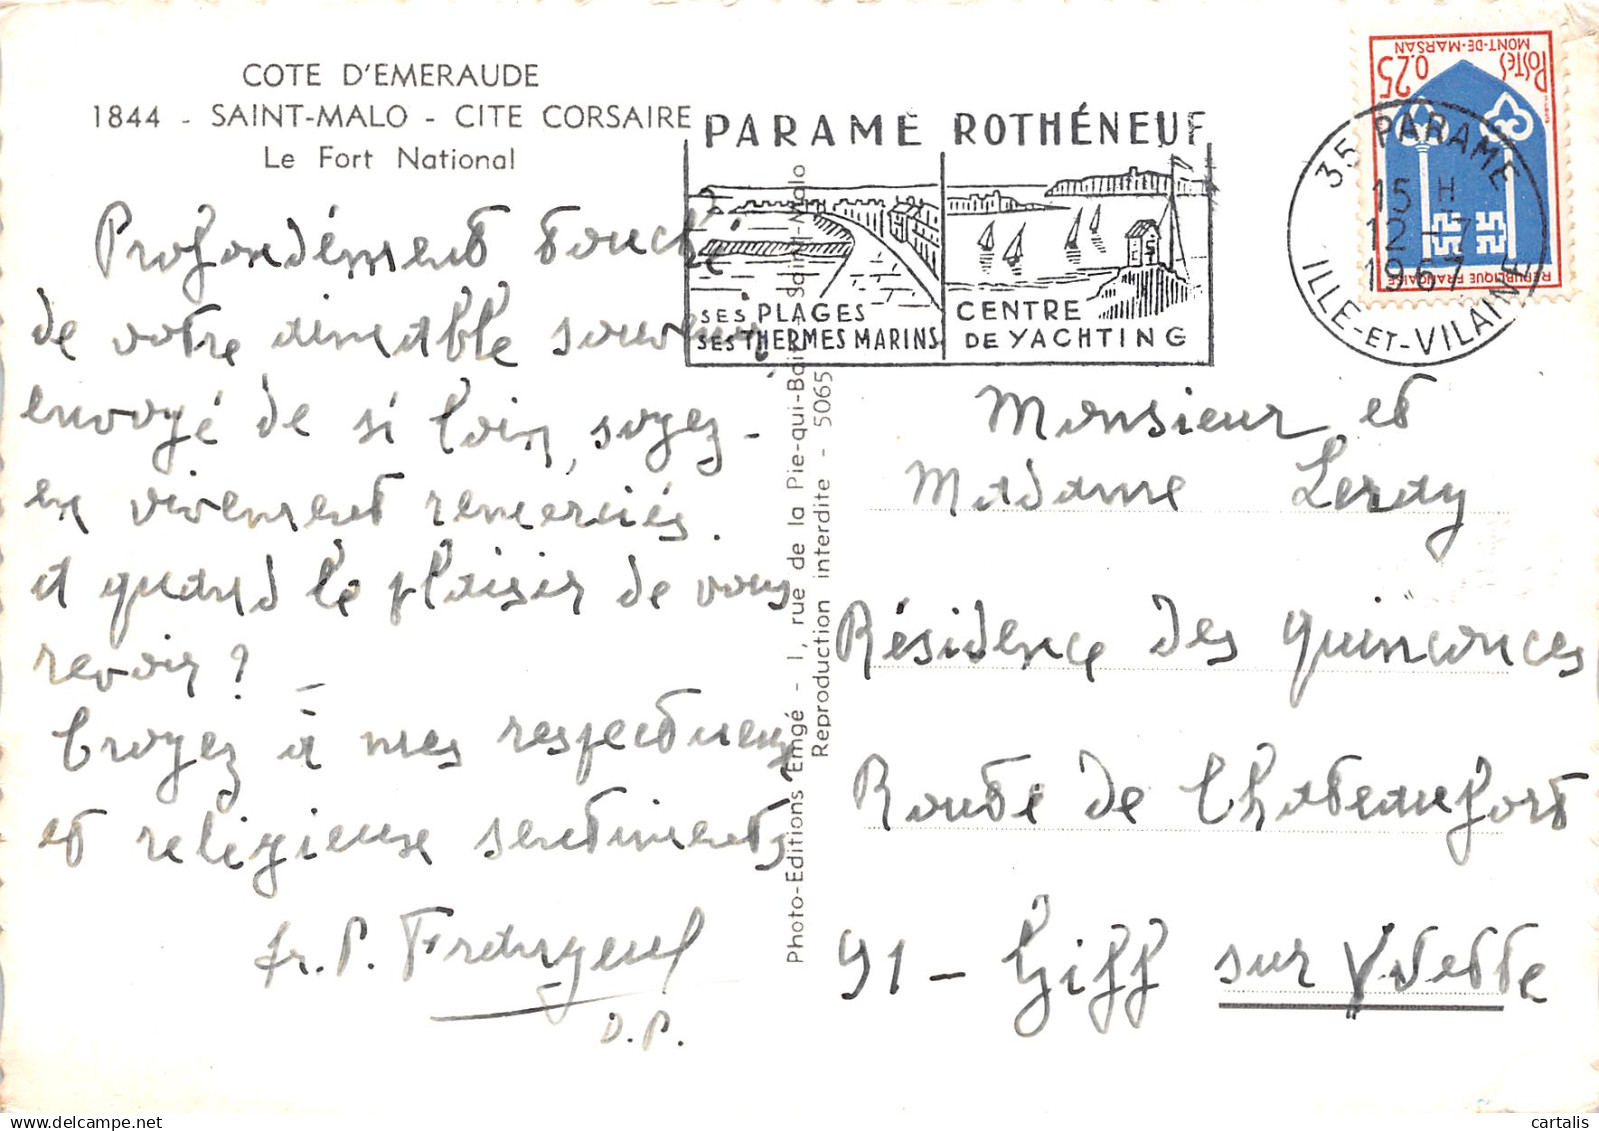 COTE D'EMERAUDE
1844 - SAINT-MALO - CITE CORSAIRE
Le Fort National
Profondément touché
de votre aimable souvenir
envoyé de si loin, soyez-
en vivement remerciés.
et quand le plaisir de vous
revoir ?
Croyez à mes respectueux
et religieux sentiments
fr. P.
D. P.
Photo-Editions Emgé - 1, rue de la Pie-qui-Boit Saint-Malo
Reproduction interdite - 5065
PARAMÉ ROTHÉNEUF
SES PLAGES
SES THERMES MARINS
CENTRE
DE YACHTING
POSTES 0.25
MONT-DE-MARSAN
REPUBLIQUE FRANÇAISE
35 PARAMÉ
15 H
12 -7
1967
ILLE-ET-VILAINE
Monsieur et
Madame Leray
Résidence des quinconces
Route de Chateaufort
91 - Giff sur Yvette
cartalis